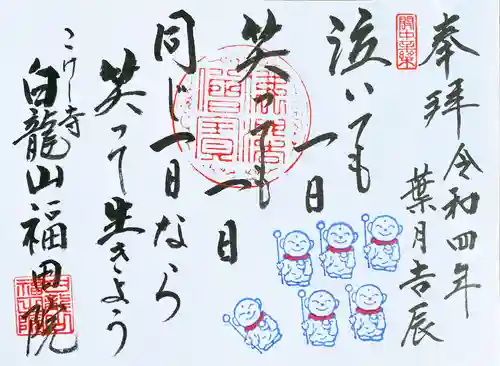 奉拝 令和四年
葉月吉辰
泣いても
一日
笑っても
一日
同じ一日なら
笑って生きよう
こけし寺
白龍山福田院